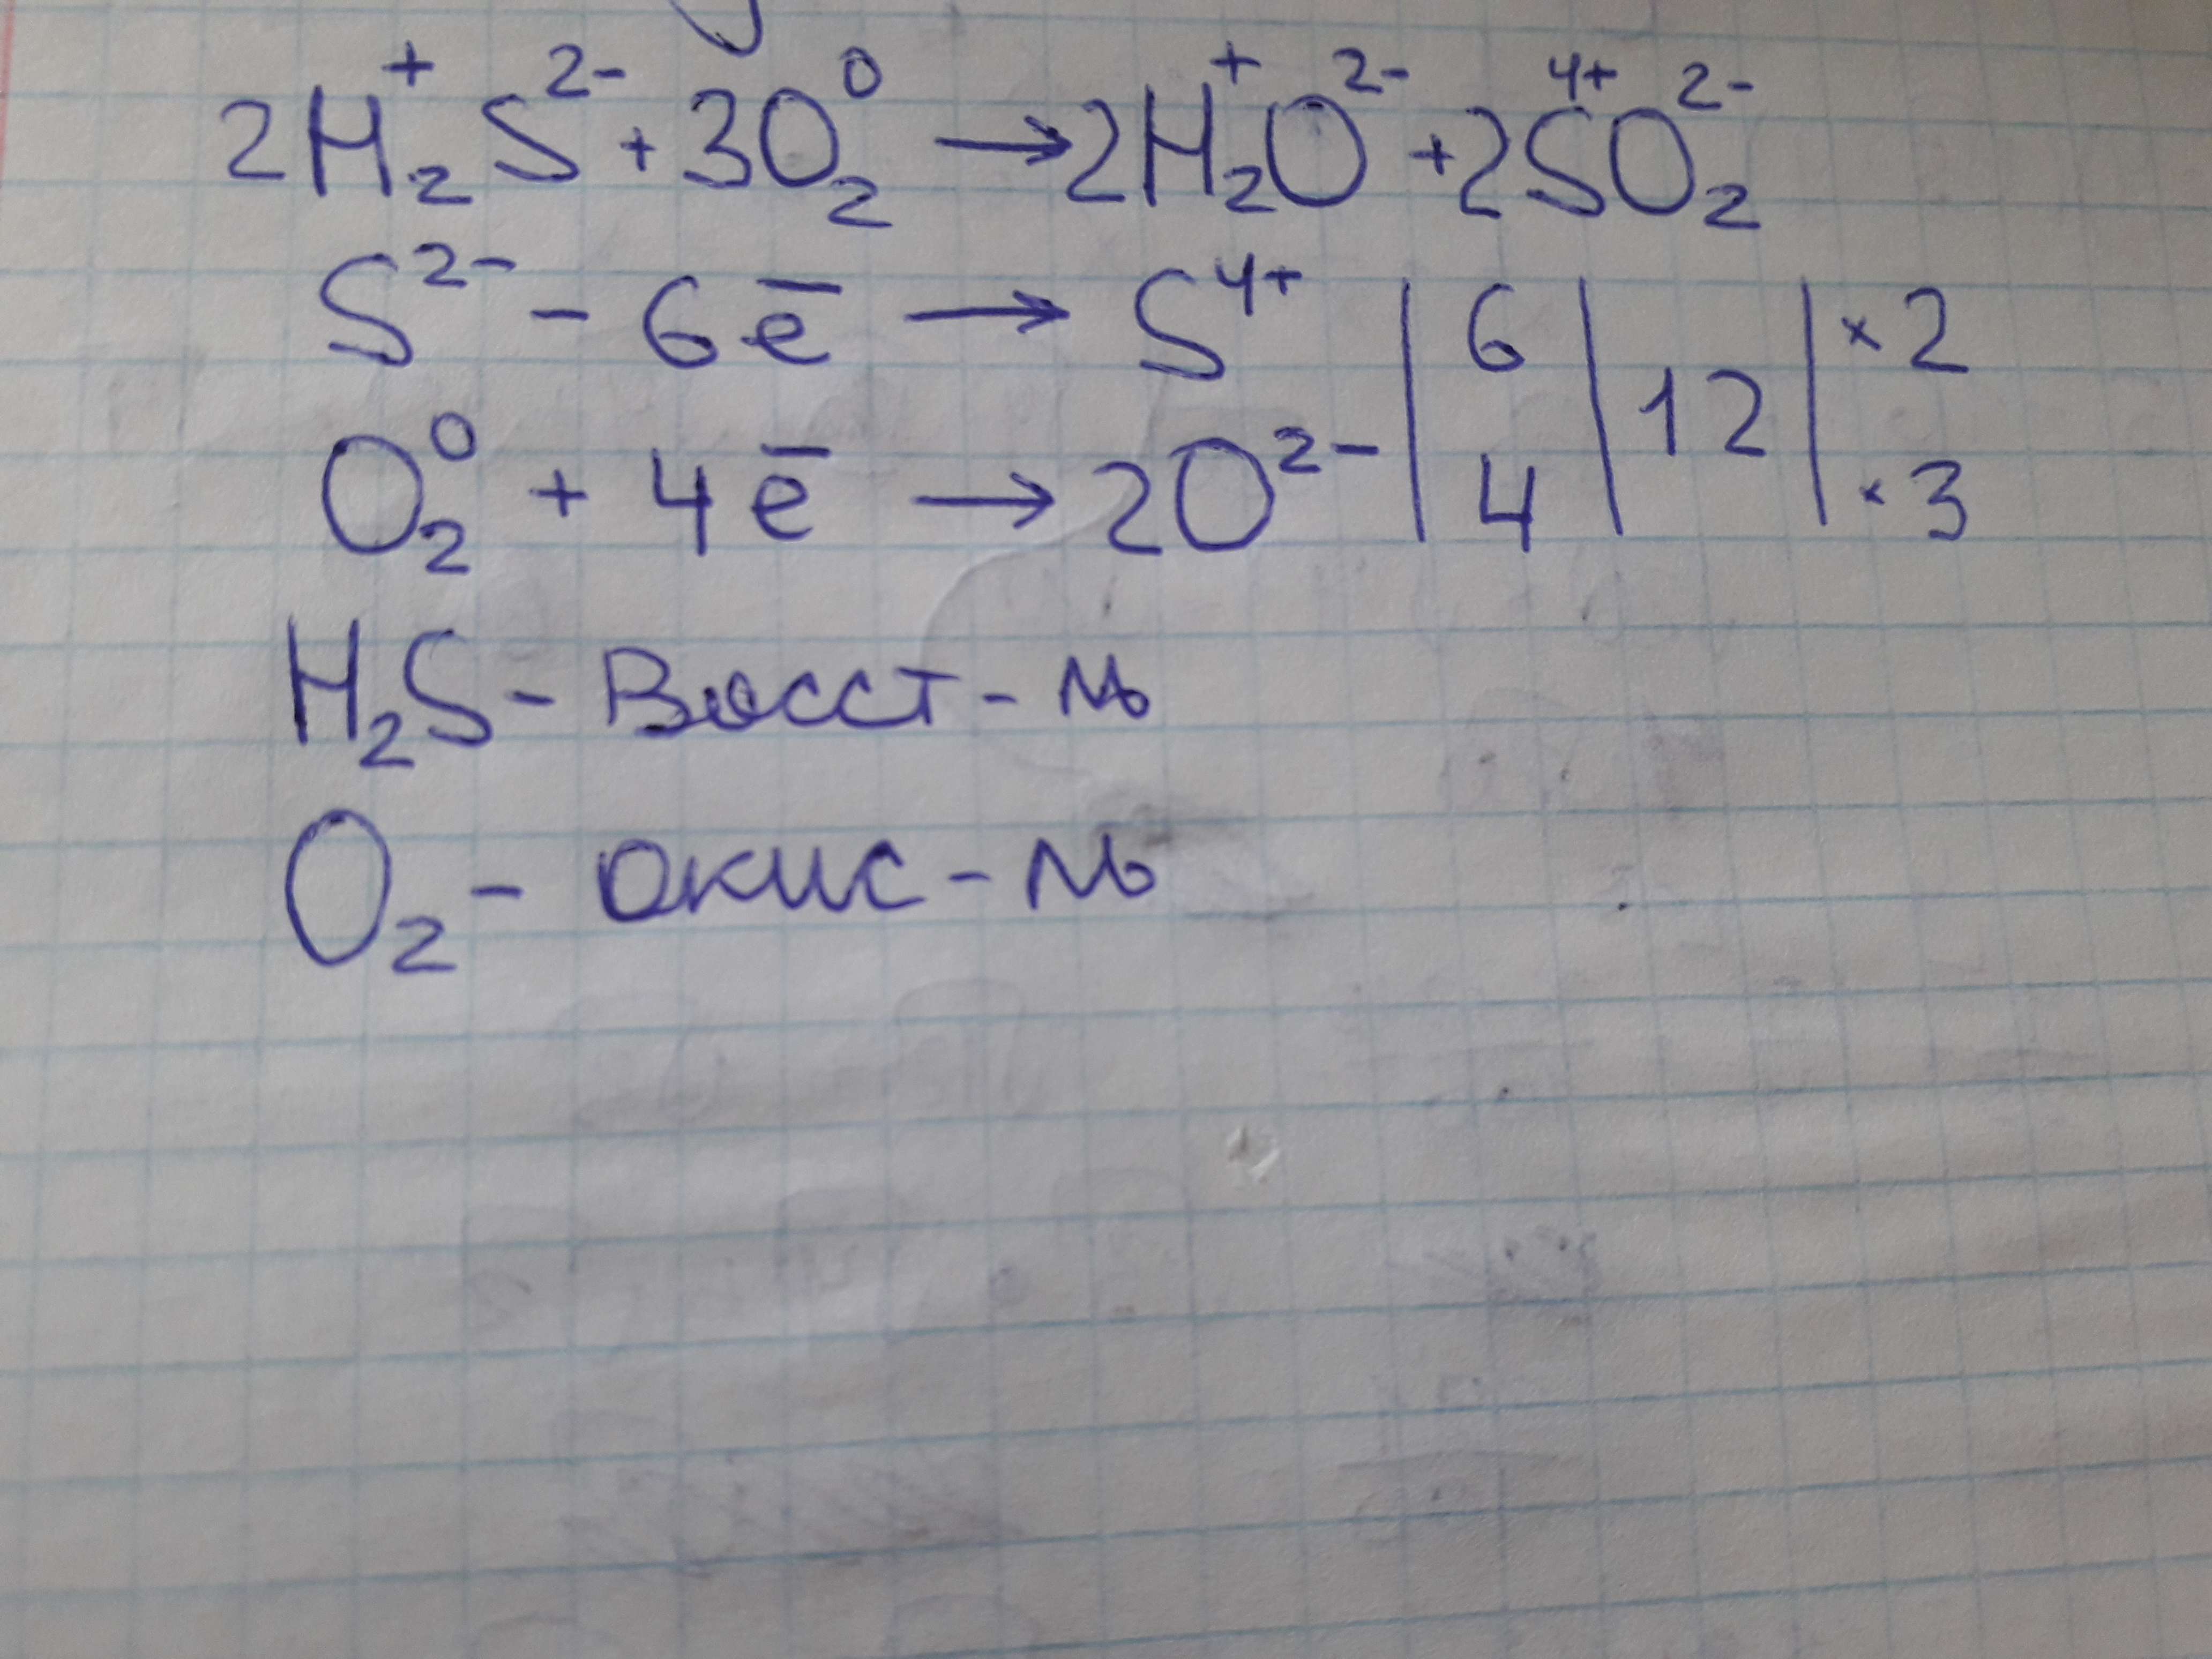 2H₂⁺S²⁻ + 3O₂⁰ → 2H₂⁺O²⁻ + 2S⁴⁺O₂²⁻
S²⁻ - 6ē → S⁴⁺ | 6 | 12 | ×2
O₂⁰ + 4ē → 2O²⁻ | 4 | | ×3
H₂S - Восст-ль
O₂ - окис-ль